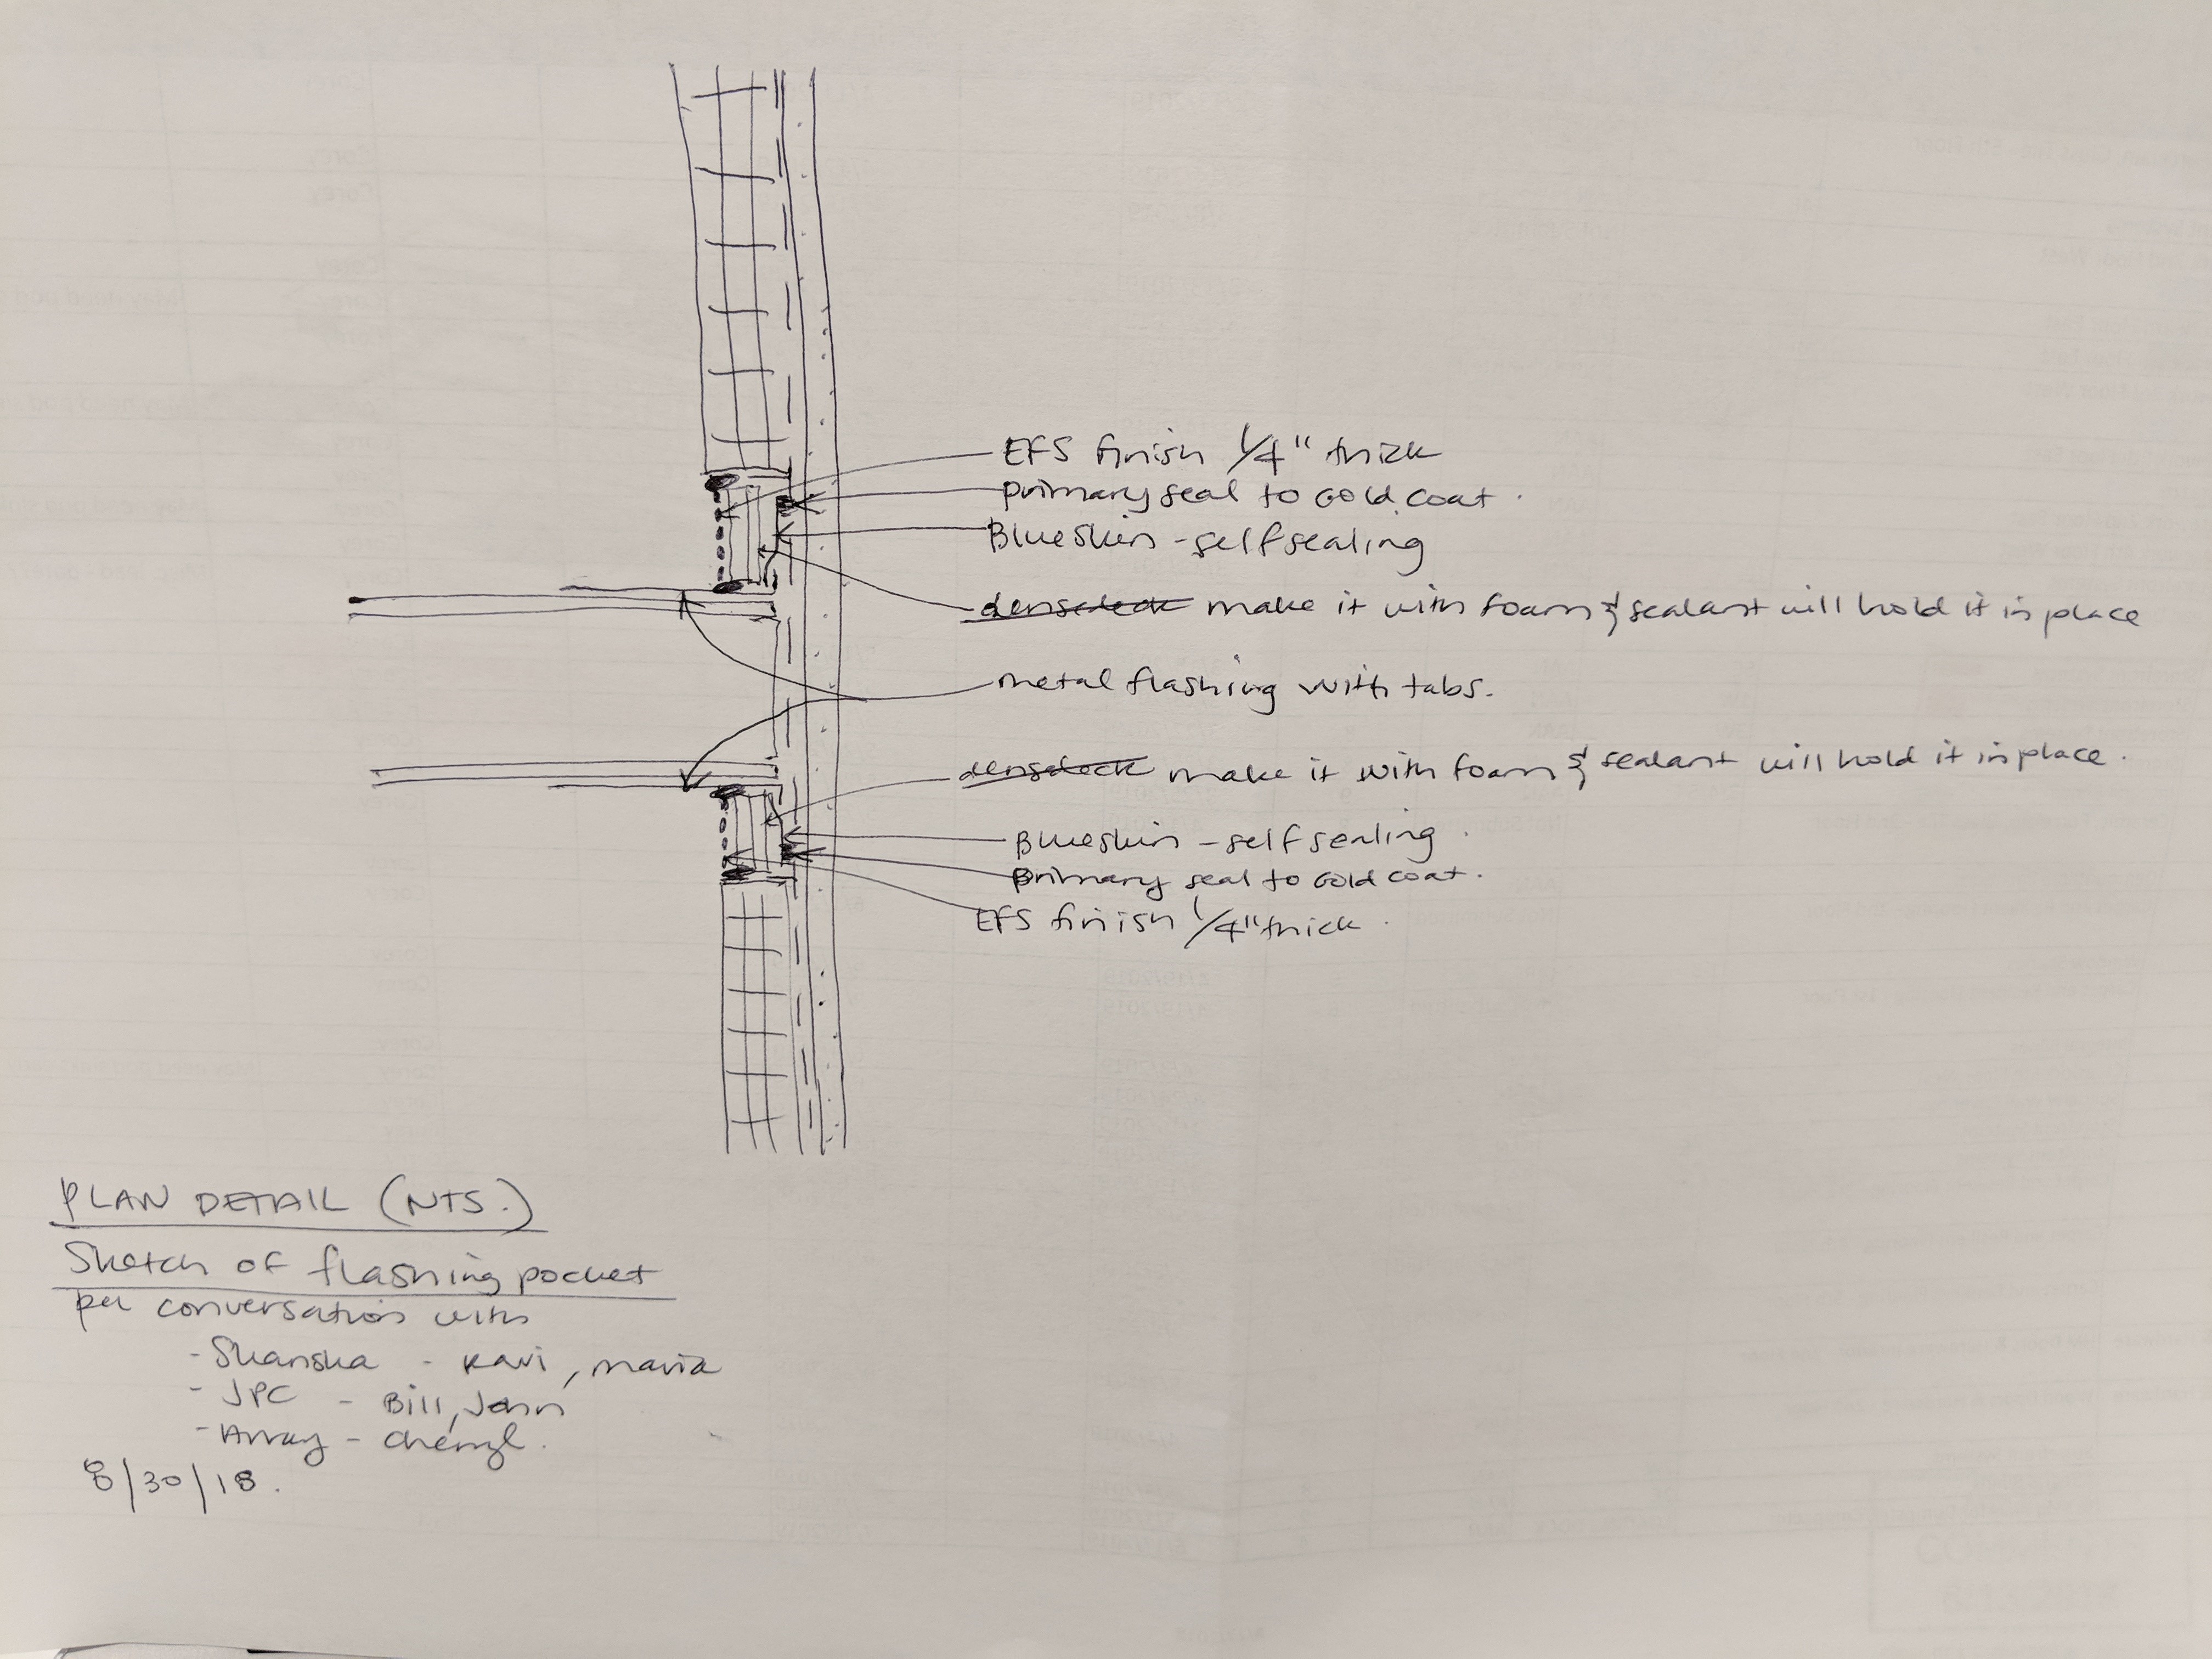 EFS finish 1/4" thick
primary seal to Gold coat.
Blueskin - self sealing
densdeck make it with foam & sealant will hold it in place
metal flashing with tabs.
densdeck make it with foam & sealant will hold it in place.
Blueskin - self sealing.
primary seal to Gold coat.
EFS finish 1/4" thick.
PLAN DETAIL (NTS.)
Sketch of flashing pocket
per conversation with
- Skanska - Ravi, maria
- JPC - Bill, John
- Array - cheryl.
8/30/18.
Corey
Corey
Corey
Corey
Corey